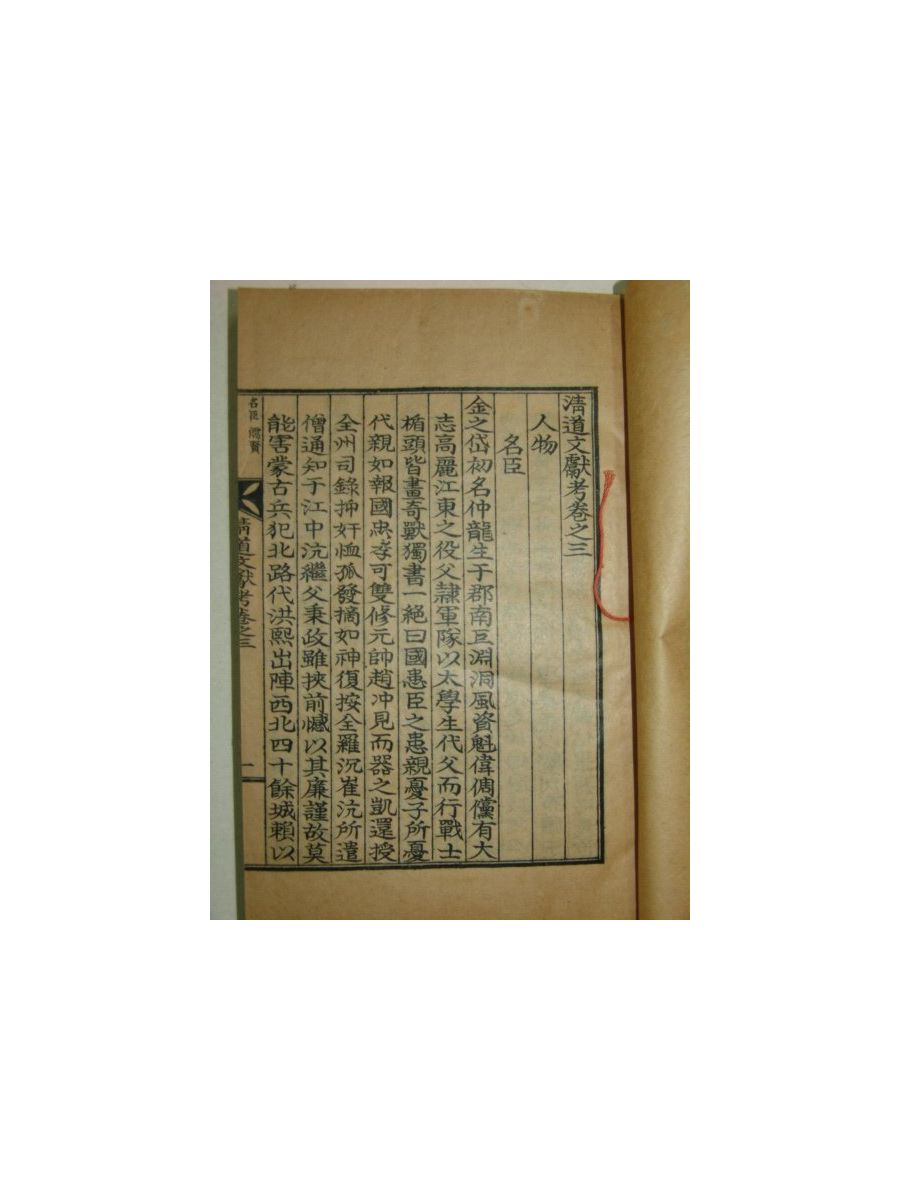 淸道文獻考卷之三
人物
名臣
金之岱初名仲龍生于郡南豆淵洞風資魁偉倜儻有大
志高麗江東之役父隷軍隊以太學生代父而行戰士
楯頭皆畫奇獸獨書一絕曰國患臣之患親憂子所憂
代親如報國忠孝可雙修元帥趙冲見而器之凱還授
全州司錄抑奸恤孤發摘如神復按全羅沉崔沆所遣
僧通知于江中沆繼父秉政雖挾前憾以其廉謹故莫
能害蒙古兵犯北路代洪熙出陣西北四十餘城賴以
名臣 儒賢
淸道文獻考卷之三
一